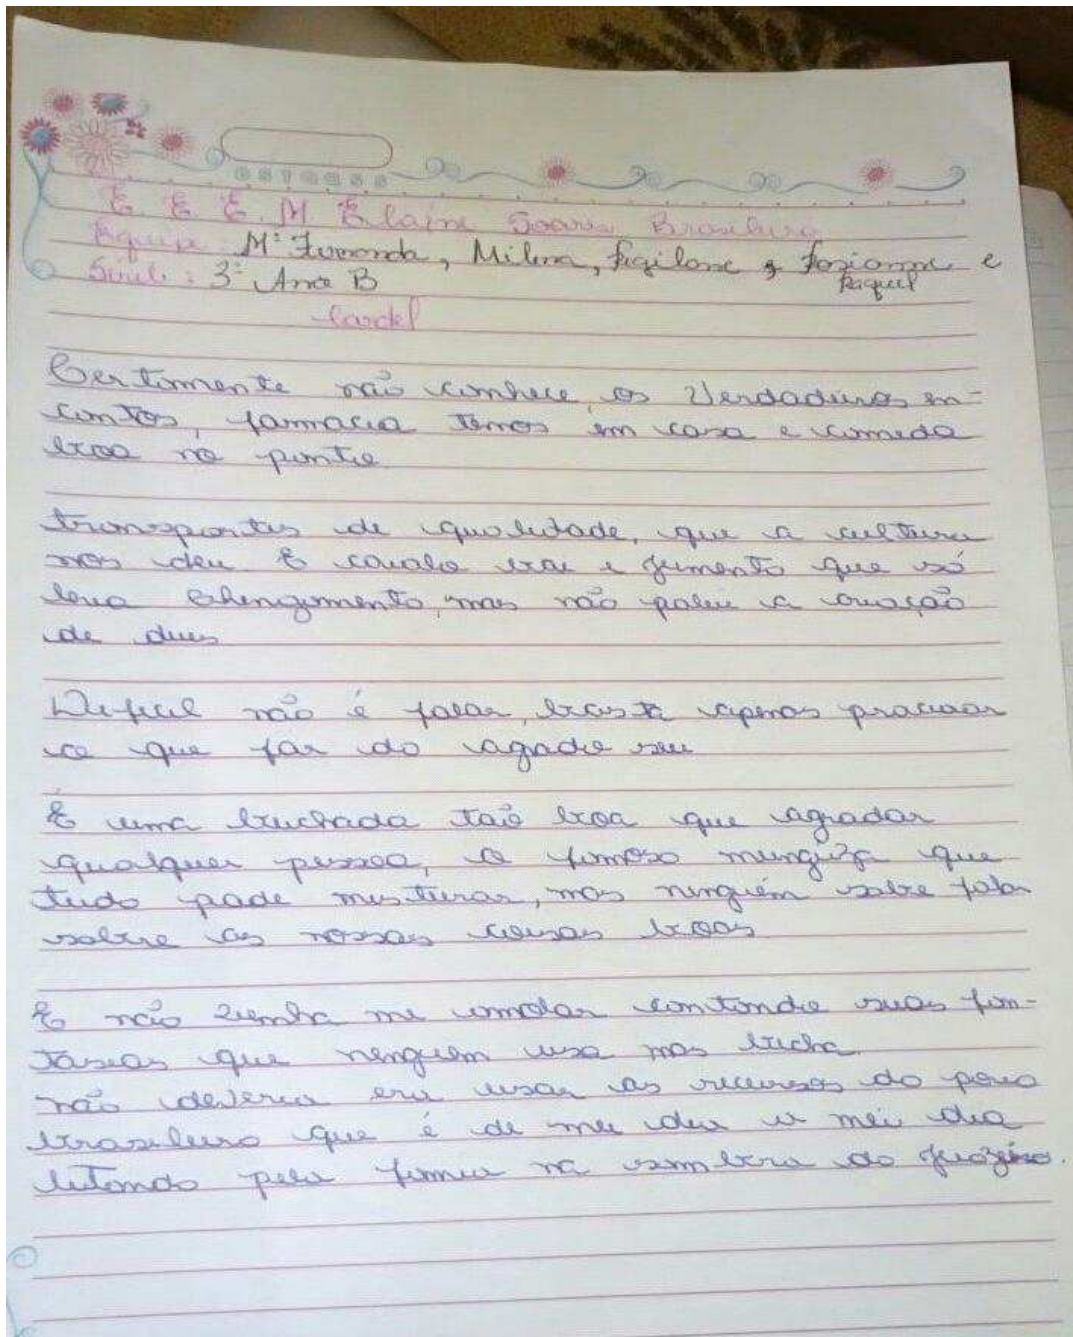 E. E. E. M Elaine Soares Brasileiro
Equipe Mª Fernanda, Milena, e
Raquel
Série: 3º Ano B
Cordel
Certamente não conhece os Verdadeiros en-
cantos, farmacia temos em casa e comida
boa no
transportes de qualidade, que a cultura
nos deu E cavalo e jumento que só
leva mas não a criação
de deus
Dificil não é falar, basta apenas procurar
o que faz do agado seu
É uma buchada tão boa que agradar
qualquer pessoa, o famoso mungiza que
tudo pode misturar, mas ninguém sabe falar
sobre as nossas coisas boas
E não venha me contando suas fan-
tasias que ninguem usa mas bicha
não deveria era usar os recursos do povo
brasileiro que é de meu deu a mei dia
lutando pela na sombra do